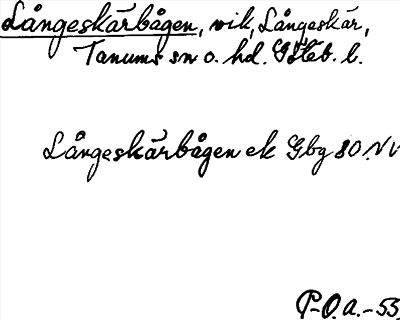 Långeskärbågen, vik, Långeskär,
Tanums sn o. hd. Göteb. l.
Långeskärbågen ek Gbg 80 NV
P-O. a. -53.